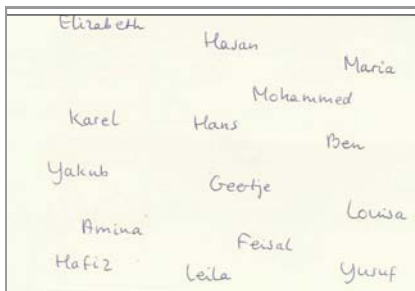 Elizabeth
Hasan
Maria
Mohammed
Karel
Hans
Ben
Yakub
Geertje
Louisa
Amina
Feisal
Hafiz
Leila
Yusuf